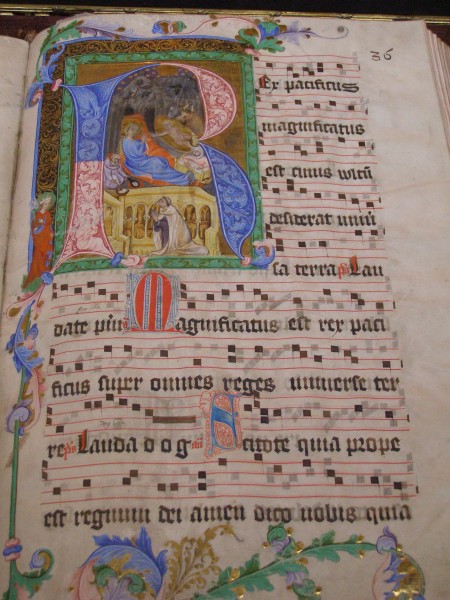 36
REx pacificus
magnificatus
est cuius vultū
desiderat univ̄
sa terra. ps Lau
date pūi. Magnificatus est rex paci
ficus super omnes reges universe ter
re. ps Lauda d o g an Scitote quia prope
est regnum dei amen dico vobis quia